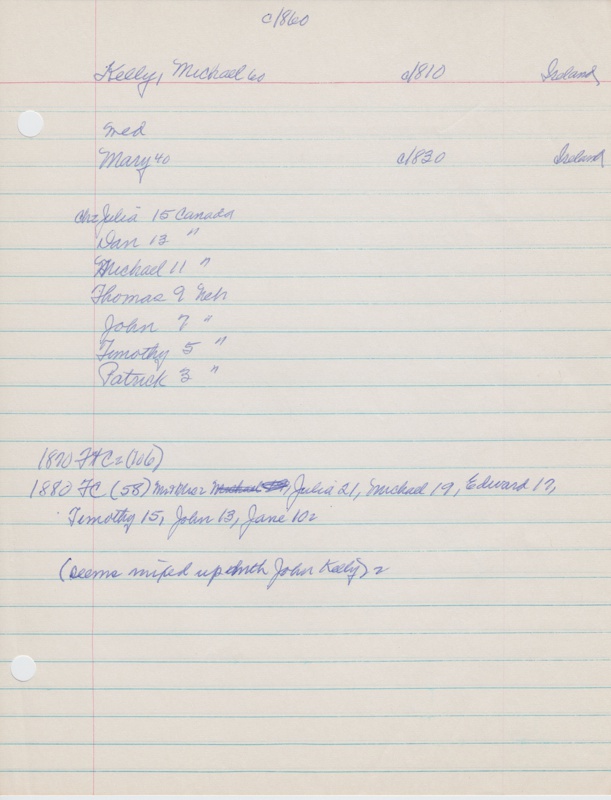 c1860
Kelly, Michael 60 c1810 Ireland
md
Mary 40 c1830 Ireland
ch: Julia 15 Canada
Dan 13 "
Michael 11 "
Thomas 9 Neb
John 7 "
Timothy 5 "
Patrick 3 "
1870 (106)
1880 FC (58) Julia 21, Michael 19, Edward 17,
Timothy 15, John 13, Jane 10
(seems mixed up with John Kelly)